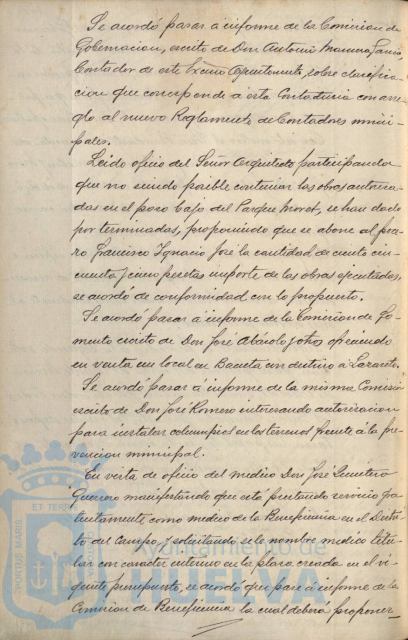 Se acordó pasar a informe de la Comisión de
Gobernacion, escrito de Don Antonio Moreno García,
Contador de este Excmo Ayuntamiento, sobre clasifica-
cion que corresponde á esta Contaduria con arre-
glo al nuevo Reglamento de Contadores munici-
pales.
Leido oficio del Señor Arquitecto participando
que no siendo posible continuar las obras autoriza-
das en el pozo bajo del Parque Moret, se han dado
por terminadas, proponiendo que se abone al poce-
ro Francisco Ignacio José la cantidad de ciento cin-
cuenta y cinco pesetas importe de las obras ejecutadas,
se acordó de conformidad con lo propuesto.
Se acordó pasar á informe de la Comisión de Fo-
mento escrito de Don José y otros ofreciendo
en venta un local en Bacuta con destino á Lazareto.
Se acordó pasar á informe de la misma Comisión
escrito de Don José Romero interesando autorizacion
para instalar columpios en los terrenos frente á la pre-
vencion municipal.
En vista de oficio del medico Don José Quintero
Guerrero manifestando que está prestando servicio gra-
tuitamente como medico de la Beneficencia en el Distri-
to del Campo, y solicitando se le nombre medico titu-
lar con caracter interino en la plaza creada en el vi-
gente presupuesto, se acordó que pase á informe de la
Comision de Beneficencia la cual deberá proponer
PORTUS MARIS
ET TERRE
Ayuntamiento de
HUELVA